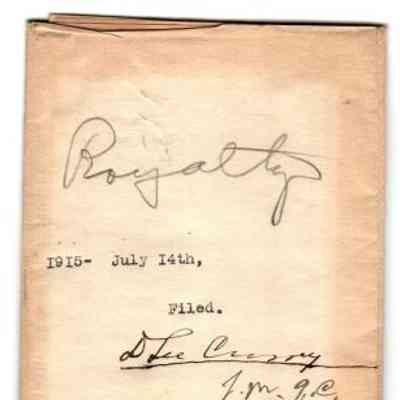 Royalty
1915- July 14th,
Filed.
D Lee Curry
J.M. J.C.